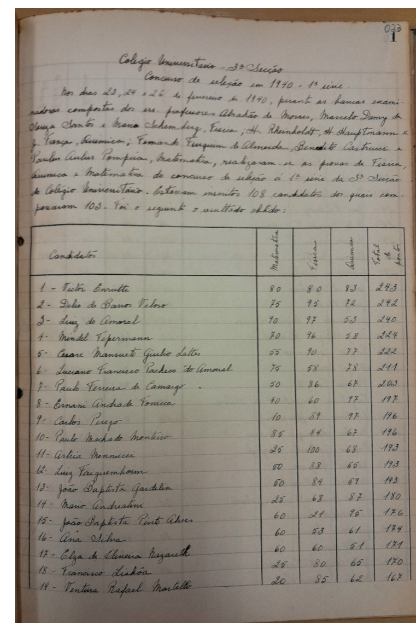 033
1
Colegio Universitario - 3ª Secção
Concurso de seleção em 1940 - 1ª serie.
Nos dias 23, 24 e 26 de fevereiro de 1940, perante as bancas exami-
nadoras compostas dos srs. professores Abrahão de Moraes, Marcelo Damy de
Souza Santos e Mario Schemberg, Fisica, H. Rheinboldt, H. Hauptmann e
Quimica, Fernando Furquim de Almeida, Benedito Castrucci e
Pompeia, Matematica, realizaram-se as provas de Fisica,
Quimica e Matematica do concurso de seleção á 1ª serie da 3ª Secção
do Colegio Universitario. Estavam inscritos 108 candidatos dos quais com-
pareceram 103. Foi o seguinte o resultado obtido:
Candidatos Matematica Fisica Quimica Total de pontos
1 - Victor 80 80 83 243
2 - Delio de Barros Veloso 75 95 72 242
3 - Luiz do Amaral 90 97 53 240
4 - Mendel 70 96 58 224
5 - Cesare Mansueto Giulio Lattes 55 90 77 222
6 - Luciano Francisco Pacheco do Amaral 75 58 78 211
7 - Paulo Ferreira de Camargo 50 86 67 203
8 - Ernani Andrade Fonseca 40 60 97 197
9 - Carlos 10 89 97 196
10 - Paulo Machado Monteiro 85 84 67 196
11 - 25 100 68 193
12 - Luiz 50 88 65 193
13 - João Baptista 50 84 59 193
14 - Mario Andreatini 25 68 87 180
15 - João Baptista Pinto Alves 60 21 95 176
16 - Ana Silva 60 53 61 174
17 - Elza de Oliveira Nazareth 60 60 51 171
18 - Francisco Lisbôa 25 80 65 170
19 - Ventura Rafael Martello 20 85 62 167